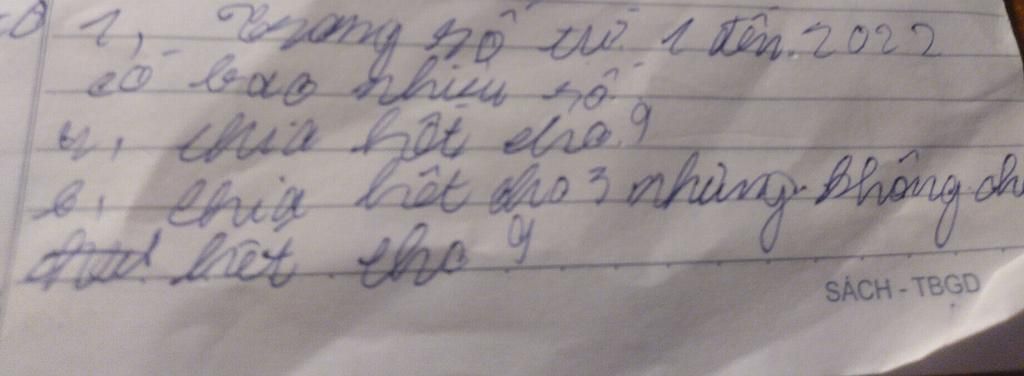 1, Trong số từ 1 đến 2022
có bao nhiêu số
a, chia hết cho 9
b, chia hết cho 3 nhưng không
hết cho 9
SÁCH - TBGD